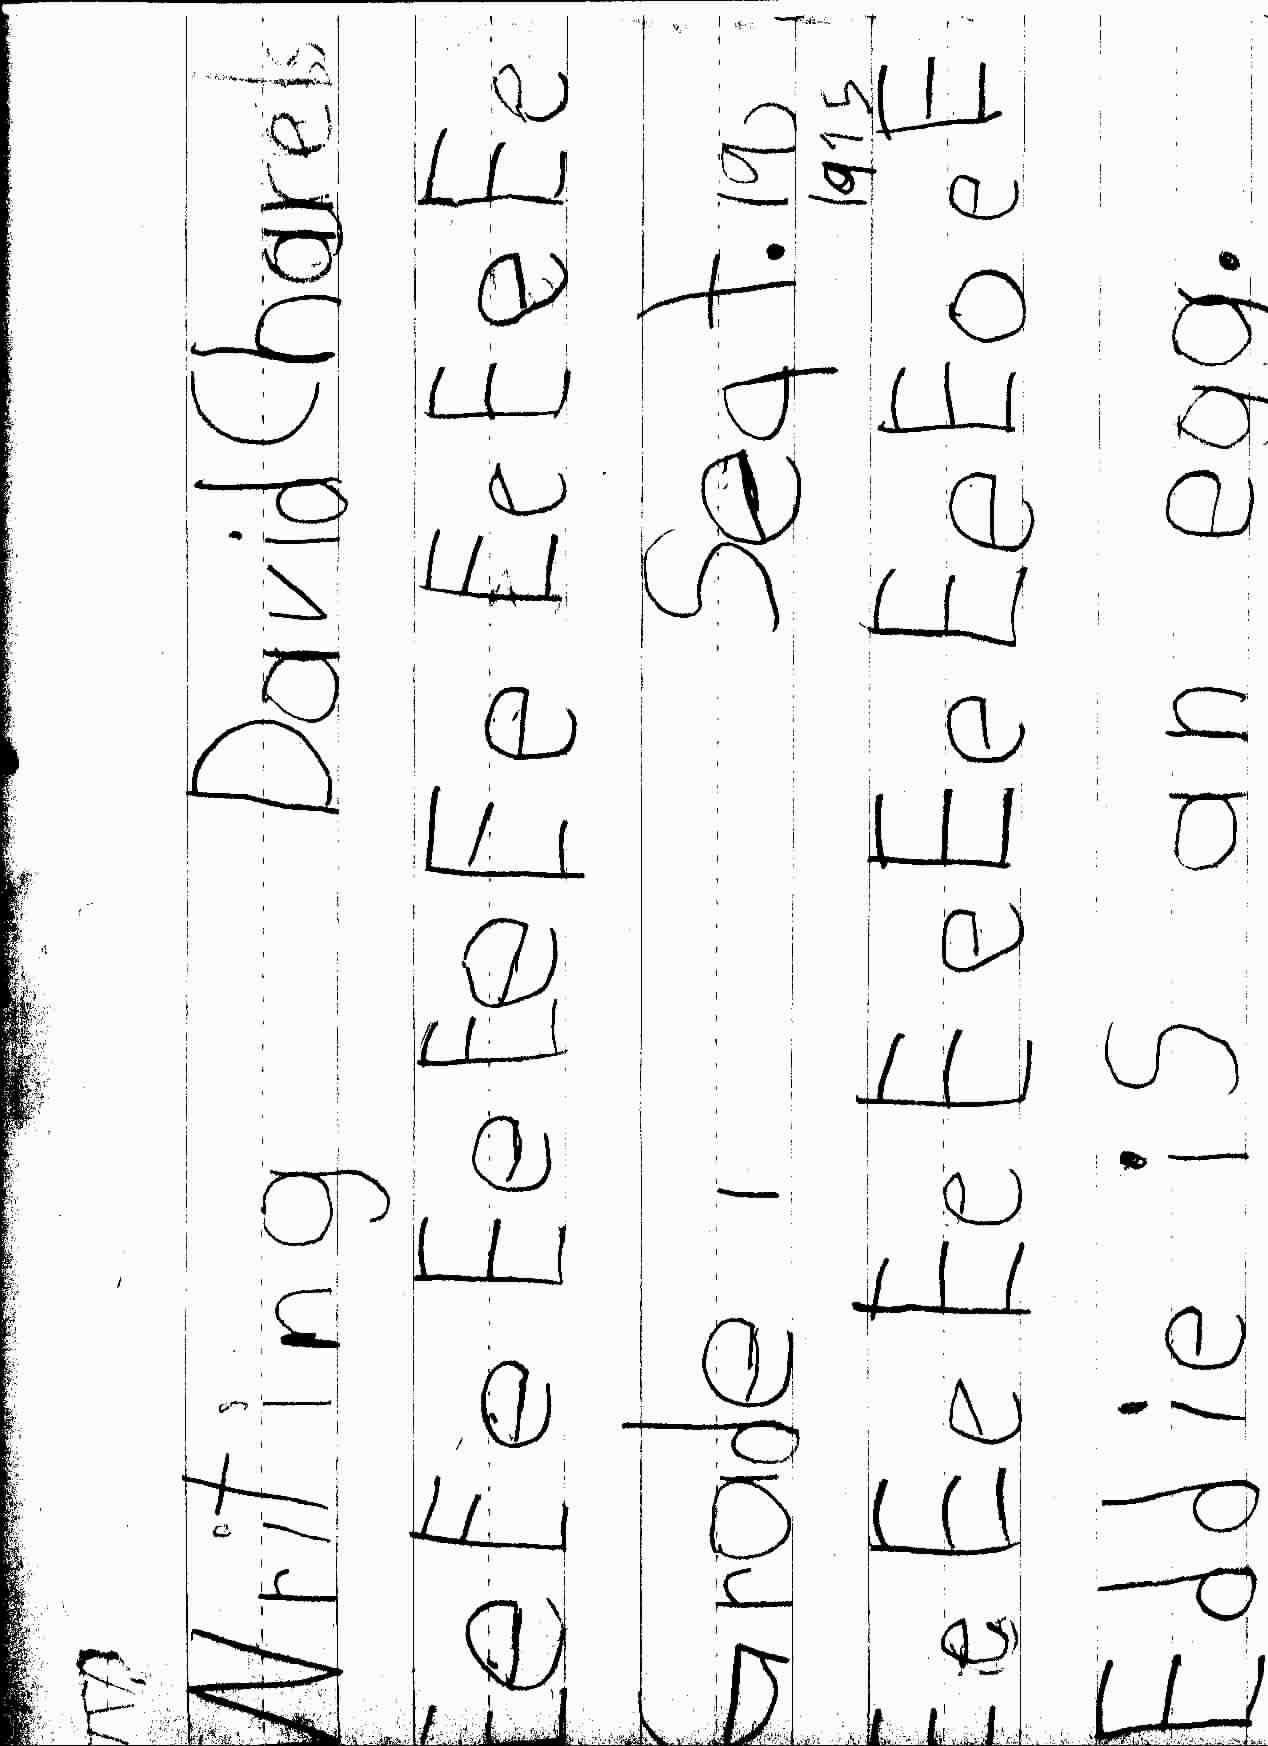 Writing David Charels
Ee Ee Ee Ee Ee Ee Ee Ee
Grade 1 Seqt. 19
1975
Ee Ee Ee Ee Ee Ee Eoe E
Eddie is an egg.